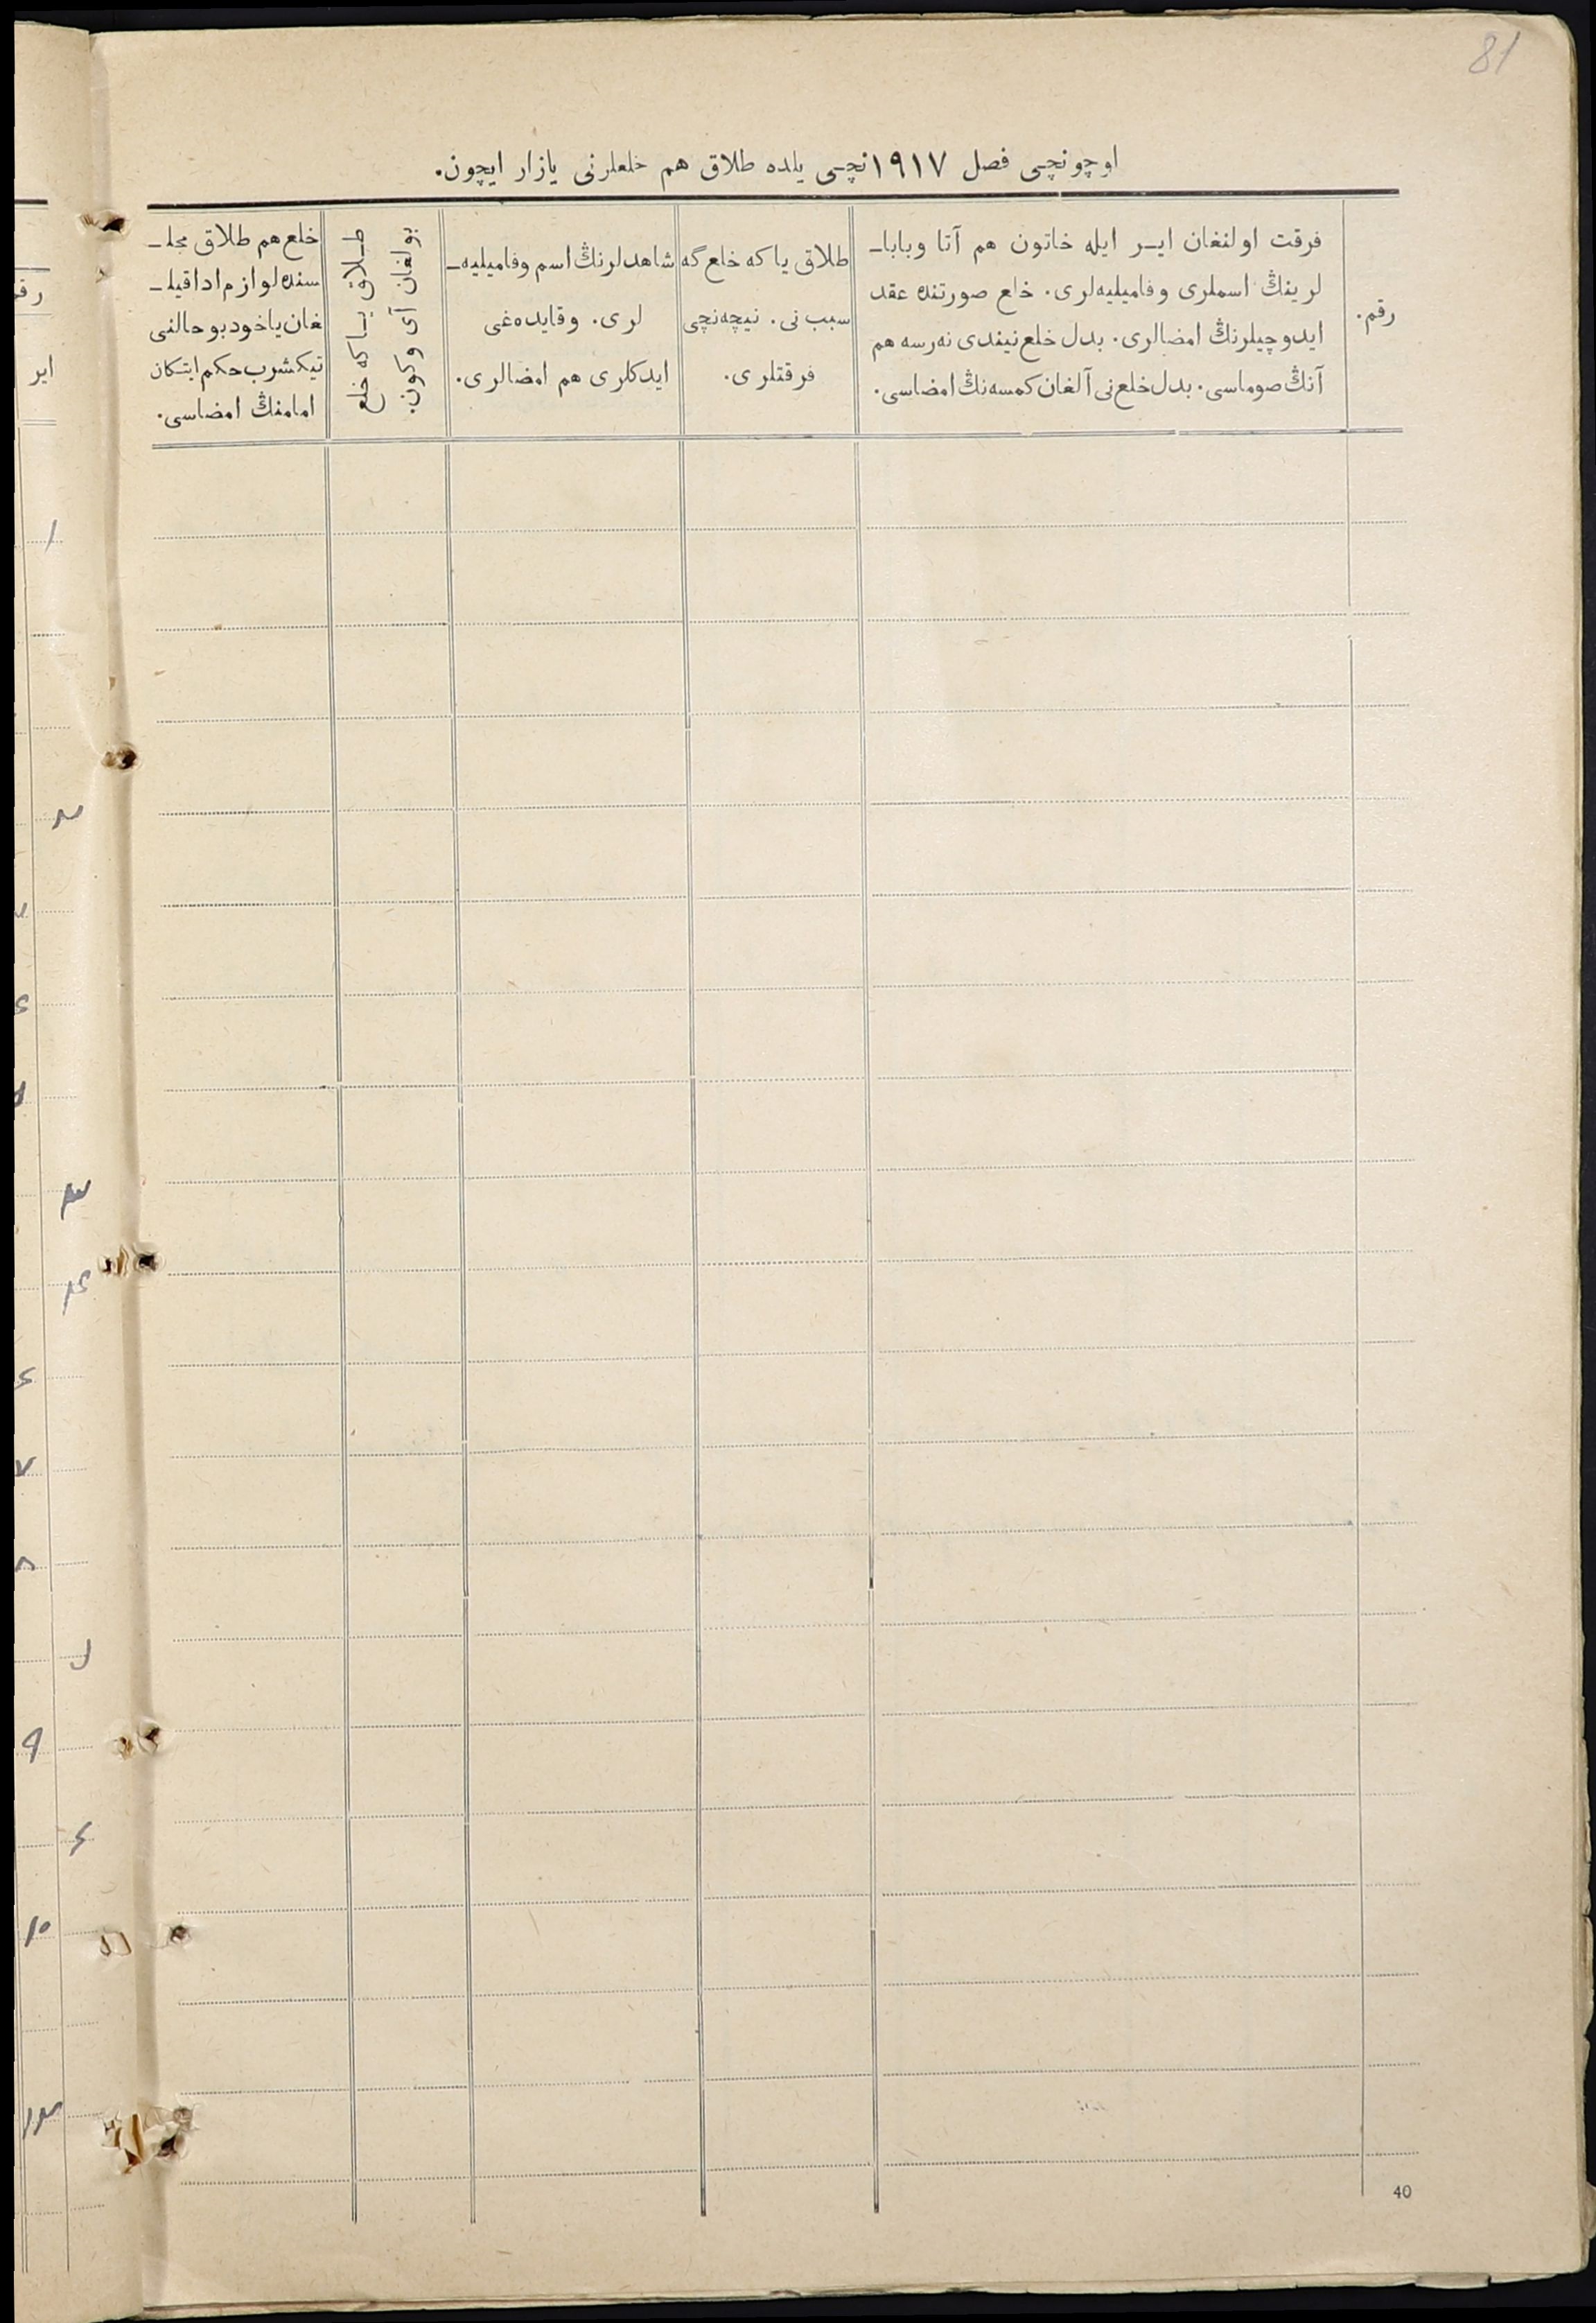 81
اوچونچی فصل ١٩١٧نچی یلده طلاق هم خلعلرنی یازار ایچون.
رقم.
فرقت اولنغان ایـر ایله خاتون هم آتا وبابا‌ـ
لرینڭ اسملری وفامیلیه‌لری. خلع صورتنده عقد
ایدوچیلرنڭ امضالری. بدل خلع نیندی نه‌رسه هم
آنڭ صوماسی. بدل خلع نی آلغان کمسه‌نڭ امضاسی.
طلاق یا که خلع گه
سبب نی. نیچه‌نچی
فرقتلری.
شاهدلرنڭ اسم وفامیلیه‌ـ
لری. وقایده‌غی
ایدکلری هم امضالری.
طـلاق یـا که خلع
بولغان آی وکون.
خلع هم طلاق مجلـ
سنده لوازم ادا قیلـ
غان یا خود بو حالنی
تیکشرب حکم ایتکان
امامنڭ امضاسی.
40
رقم
ایر
١
٢
٧
٨
٩
١٠